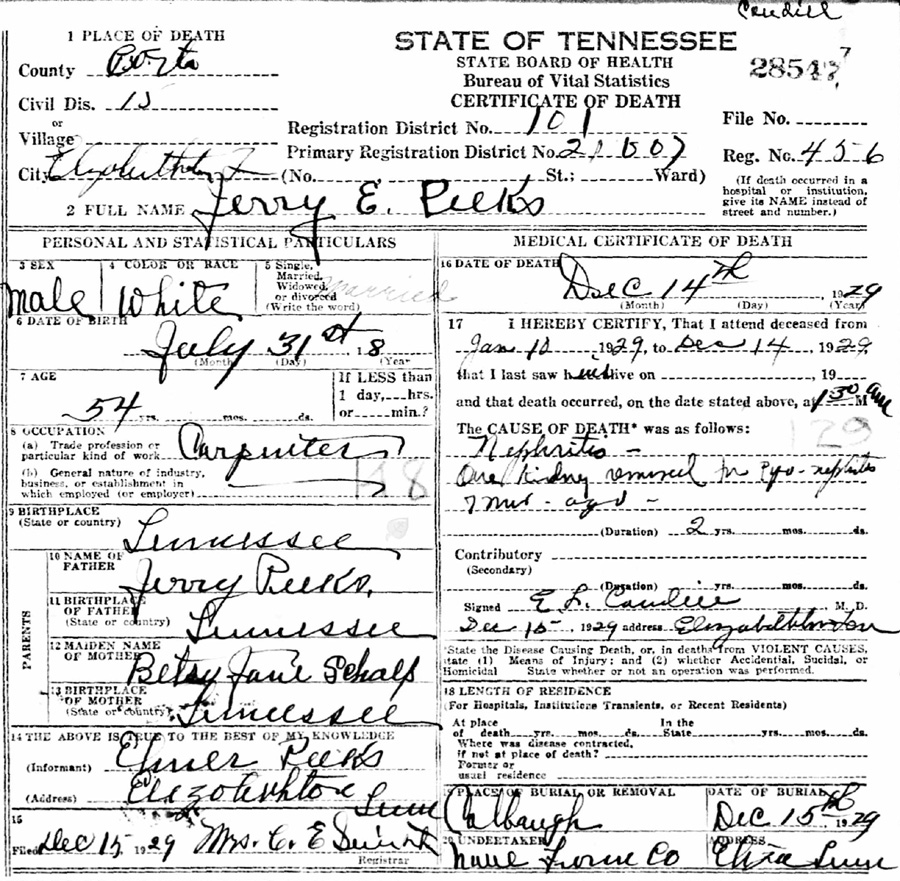 Caudill
1 PLACE OF DEATH
County
Civil Dis. 15
or
Village
City Elizabethton
STATE OF TENNESSEE
STATE BOARD OF HEALTH
Bureau of Vital Statistics
CERTIFICATE OF DEATH
28547 7
Registration District No. 101
File No.
Primary Registration District No.
Reg. No. 456
(No. St.; Ward)
(If death occurred in a hospital or institution, give its NAME instead of street and number.)
2 FULL NAME Jerry E. Peeks
PERSONAL AND STATISTICAL PARTICULARS
3 SEX
Male
4 COLOR OR RACE
White
5 Single,
Married,
Widowed,
or divorced
(Write the word)
married
6 DATE OF BIRTH
July 31st 18
(Month) (Day) (Year
7 AGE
54 yrs. mos. ds.
If LESS than
1 day, hrs.
or min.?
8 OCCUPATION
(a) Trade profession or
particular kind of work Carpenter
(b) General nature of industry,
business, or establishment in
which employed (or employer)
9 BIRTHPLACE
(State or country)
Tennessee
PARENTS
10 NAME OF
FATHER
Jerry Peeks.
11 BIRTHPLACE
OF FATHER
(State or country)
Tennessee
12 MAIDEN NAME
OF MOTHER
Betsy Jane
13 BIRTHPLACE
OF MOTHER
(State or country)
Tennessee
14 THE ABOVE IS TRUE TO THE BEST OF MY KNOWLEDGE
(Informant) Elmer Peeks
(Address) Elizabethton
Tenn
15
Filed Dec 15 1929 Mrs. C. E
Registrar
MEDICAL CERTIFICATE OF DEATH
16 DATE OF DEATH
Dec 14th 1929
(Month) (Day) (Year)
17 I HEREBY CERTIFY, That I attend deceased from
Jan 10, 1929, to Dec 14, 1929,
that I last saw h alive on , 19
and that death occurred, on the date stated above, at 1 30 M
The CAUSE OF DEATH* was as follows:
129
Nephritis -
One kidney removed for Pyo-nephritis
7 mos - ago -
(Duration) 2 yrs. mos. ds.
Contributory
(Secondary)
(Duration) yrs. mos. ds.
Signed E. L. Caudill M. D.
Dec 15, 1929 address Elizabethton
*State the Disease Causing Death, or, in deaths from VIOLENT CAUSES,
state (1) Means of Injury; and (2) whether Accidental, Sucidal, or
Homicidal State whether or not an operation was performed.
18 LENGTH OF RESIDENCE
(For Hospitals, Institutions Transients, or Recent Residents)
At place In the
of death yrs. mos. ds. State yrs. mos. ds.
Where was disease contracted,
if not at place of death?
Former or
usual residence
PLACE OF BURIAL OR REMOVAL
DATE OF BURIAL
Dec 15th 1929
20 UNDERTAKER
ADDRESS